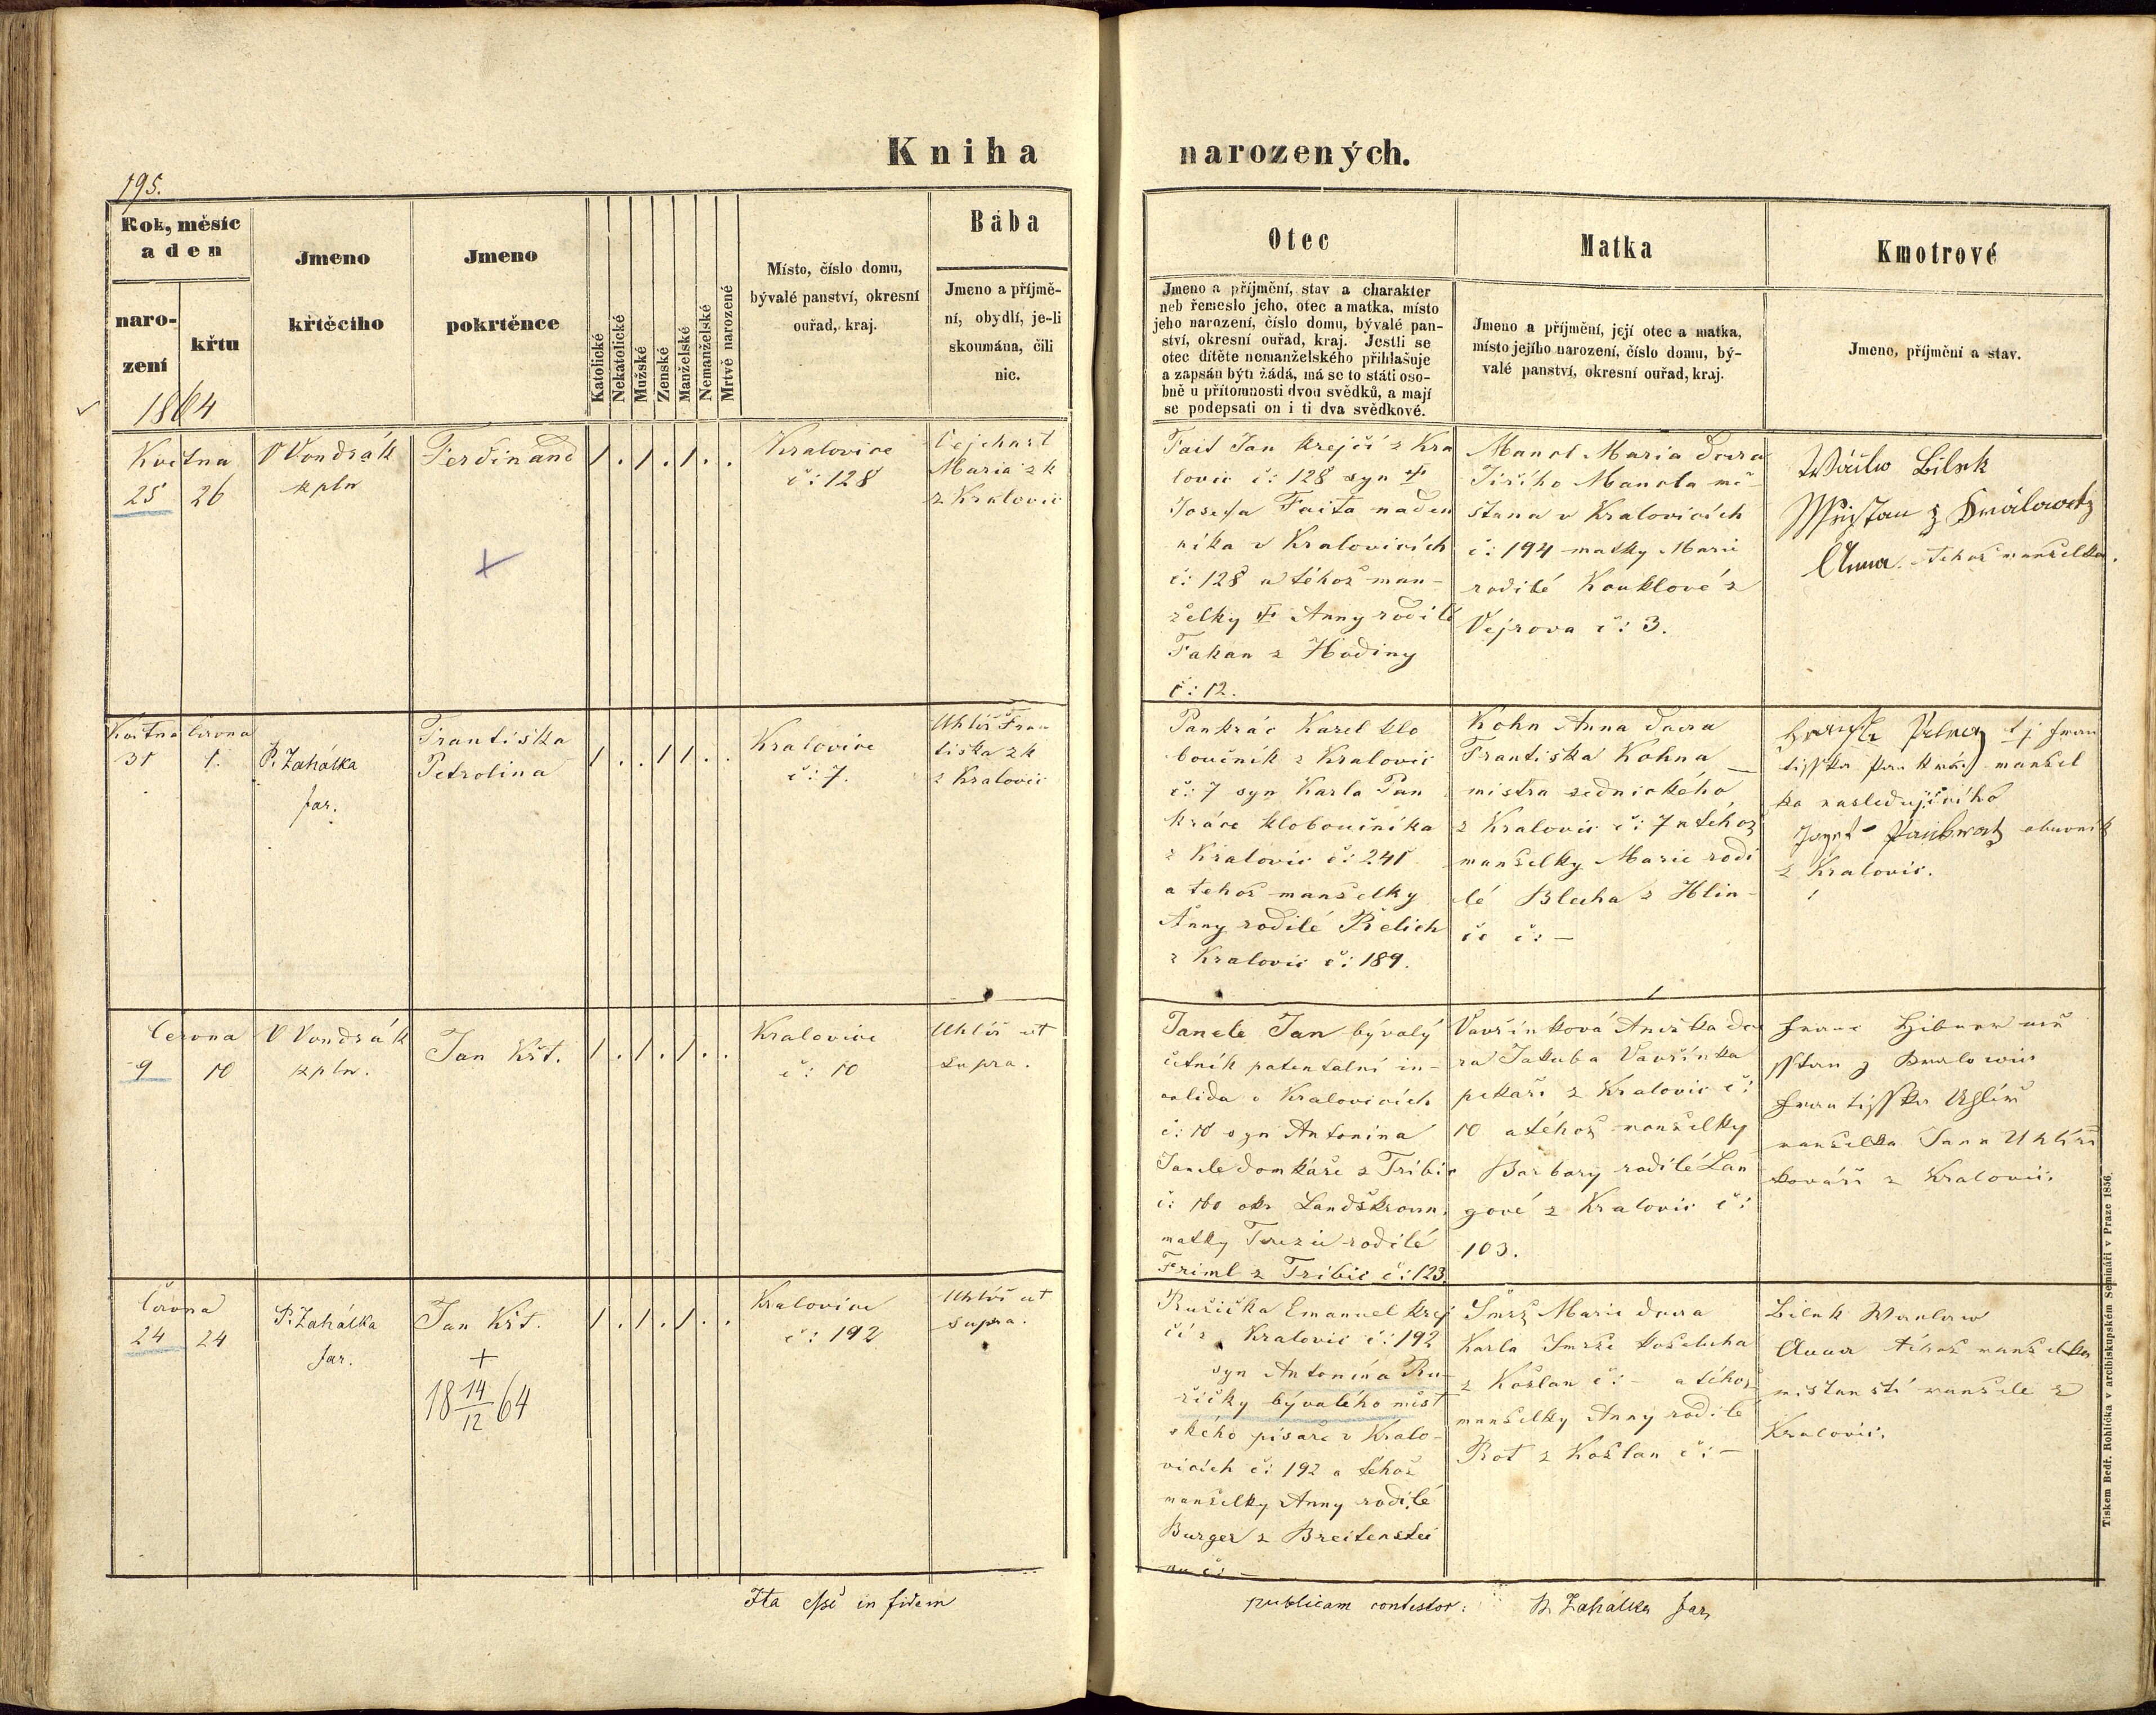 Kniha narozených.
195.
Rok, měsíc
a den
naro-
zení
křtu
1864
Jmeno
křtěcího
Jmeno
pokrtěnce
Katolické
Nekatolické
Mužské
Zenské
Manželské
Nemanželské
Mrtvě narozené
Místo, číslo domu,
bývalé panství, okresní
ouřad, kraj.
Bába
Jmeno a příjmě-
ní, obydlí, je-li
skoumána, čili
nic.
Otec
Jmeno a příjmění, stav a charakter
neb řemeslo jeho, otec a matka, místo
jeho narození, číslo domu, bývalé pan-
ství, okresní ouřad, kraj. Jestli se
otec dítěte nemanželského přihlašuje
a zapsán býti žádá, má se to státi oso-
bně u přítomnosti dvou svědků, a mají
se podepsati on i ti dva svědkové.
Matka
Jmeno a příjmění, její otec a matka,
místo jejího narození, číslo domu, bý-
valé panství, okresní ouřad, kraj.
Kmotrové
Jmeno, příjmění a stav.
Května
25 26
V Vondrák
kpln
Ferdinand
/ . / . / . .
Kralovice
č: 128
Maria zk
z Kralovic
Fait Jan krejčí z Kra
lovic č: 128 syn †
Josefa Faita naden
níka v Kralovicích
č: 128 a téhož man-
želky † Anny rodilé
Fakan z Hodiny
č: 12.
Manol Maria dcera
Jiřího Manola mě-
štana v Kralovicích
č: 194 matky Marie
rodilé Kouklové z
Vejrova č: 3.
Bilek
Anna tehož manželka.
Května Června
31 1.
P. Zahálka
far.
Františka
Petrolina
/ . . / / . .
Kralovice
č: 7.
Uhlíř Fran
tiska zk
z Kralovic
Pankrác Karel klo
boučník z Kralovic
č: 7 syn Karla Pan
kráce kloboučníka
z Kralovic č: 241
a tehož manželky
Anny rodilé Rielich
z Kralovic č: 189.
Kohn Anna dcera
Františka Kohna
mistra zednického
z Kralovic č: 7 a téhož
manželky Marie rodi
lé Blecha z Hlin-
če č: —
tj Fran
tisska Pankrác manžel
ka nasledujícího
Josef Pankratz obuvník
z Kralovic.
Června
9 10
V Vondrák
kpln.
Jan Křt.
/ . / . / . .
Kralovice
č: 10
Uhlíř ut
supra.
Janele Jan bývalý
četník patentalní in-
valida v Kralovicích
č: 10 syn Antonína
Janele domkáře z Tribic
č: 160 okr Landškroun.
matky Terezie rodilé
Friml z Tribic č: 123.
Vavřinková Anežka dce
ra Jakuba Vavřínka
pekaři z Kralovic č:
10 a téhož manželky
Barbory rodilé Lan
gové z Kralovic č:
103.
Franc
sstan z Kralowic
Frantisska Uhlíř
manželka Jana Uhlíři
kováři z Kralovic.
Června
24 24
P. Zahálka
far.
Jan Křt.
+
18 14/12 64
/ . / . / . .
Kralovice
č: 192
Uhlíř ut
supra.
Ružička Emanuel krej
čí z Kralovic č: 192
syn Antonína Ru-
žičky bývalého měst
ského písaře v Kralo-
vicích č: 192 a téhož
manželky Anny rodilé
Burger z Breitenstei
nu č: —
Smrž Marie dcera
Karla Smrže koželuha
z Kožlan č: — a téhož
manželky Anny rodilé
Rot z Kožlan č: —
Bilek Wanlaw
Anna téhož manželka
mistanští manžele z
Kralovic.
Ita esse in fidem publicam contestor: P. Zahálka far.
Tiskem Bedř. Rohlíčka v arcibiskupském Semináři v Praze 1856.